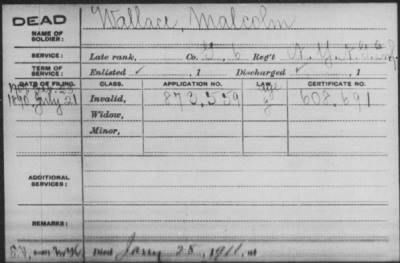 DEAD
Wallace, Malcolm
NAME OF SOLDIER:
SERVICE: Late rank, Co. 6 Reg't N.Y.
TERM OF SERVICE: Enlisted ✓, 1 Discharged ✓, 1
DATE OF FILING. CLASS. APPLICATION NO. LAW. CERTIFICATE NO.
1890 July 21 Invalid, 873,559 608,691
Widow,
Minor,
ADDITIONAL SERVICES:
REMARKS:
Died Jany 25, 1911, at